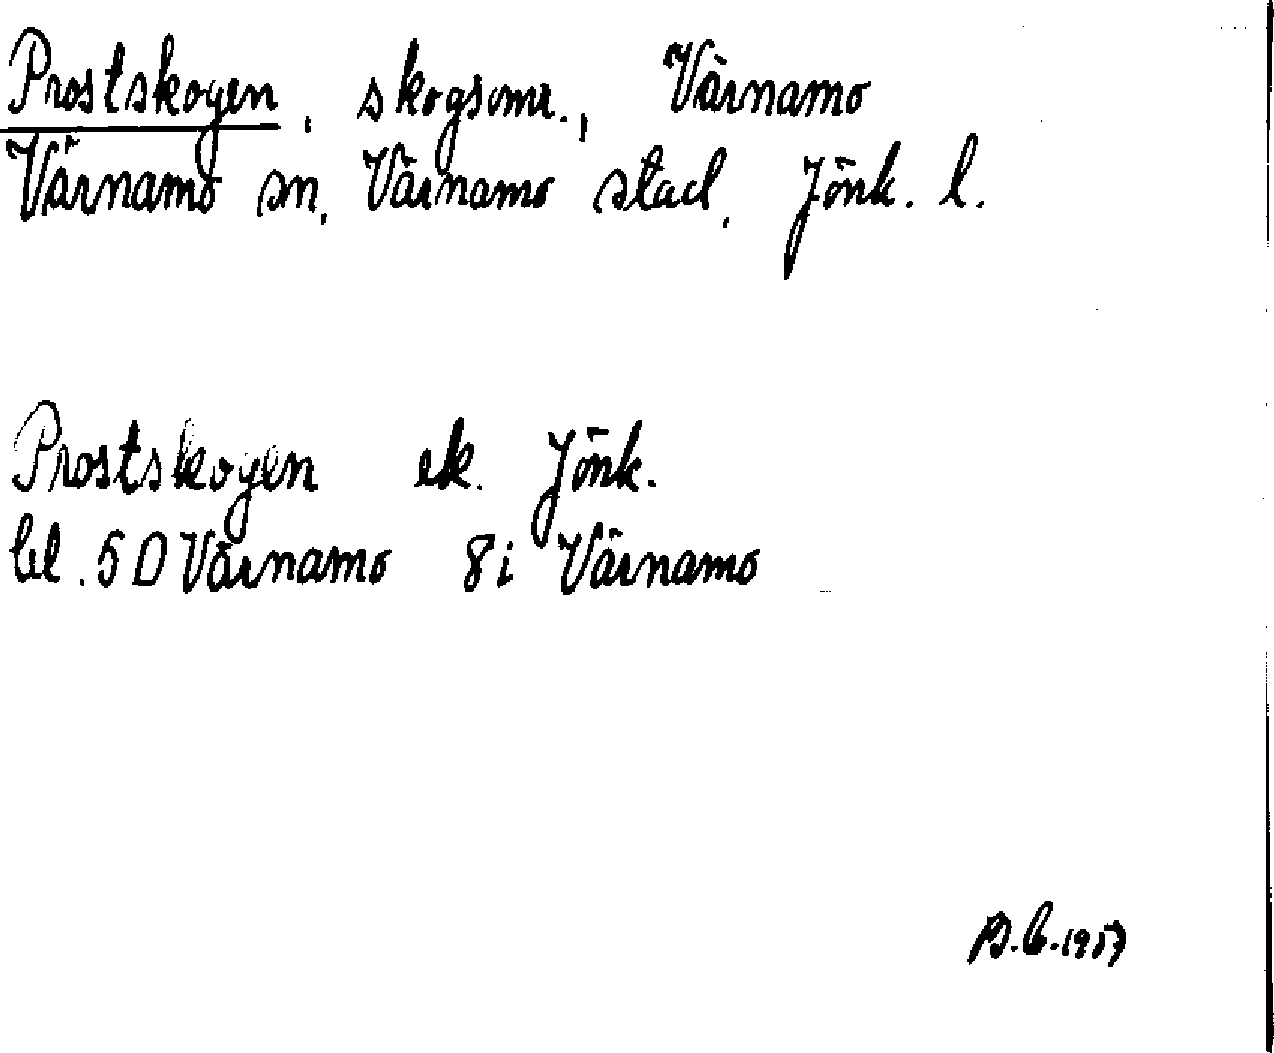 Prostskogen, skogsomr., Värnamo
Värnamo sn, Värnamo stad, Jönk. l.
Prostskogen ek. Jönk.
bl. 5 D Värnamo 8i Värnamo
1957